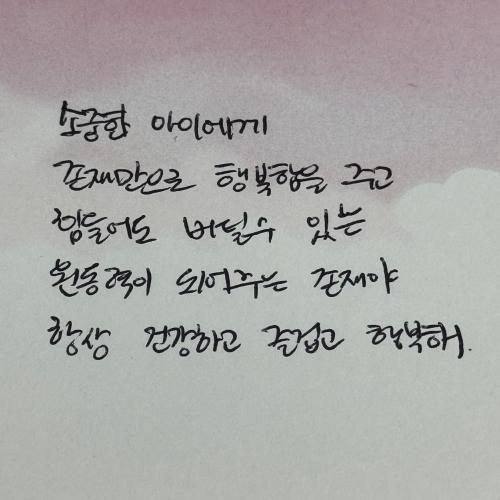 소중한 아이에게
존재만으로 행복함을 주고
힘들어도 버틸수 있는
원동력이 되어주는 존재야
항상 건강하고 즐겁고 행복해.